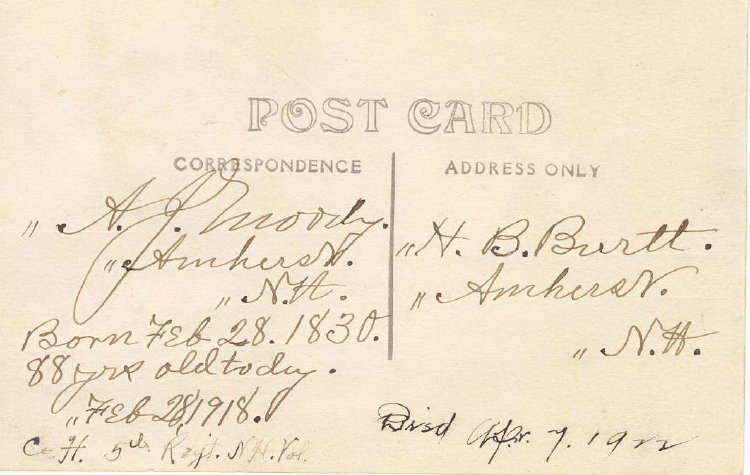 POST CARD
CORRESPONDENCE
ADDRESS ONLY
" A. J. Moody.
" Amherst.
" N.H.
Born Feb 28. 1830.
88 yrs old today.
" Feb 28, 1918.
Co H. 5th Regt. N.H. Vol.
" H. B. Burtt.
" Amherst.
" N.H.
Died Apr. 7. 1922